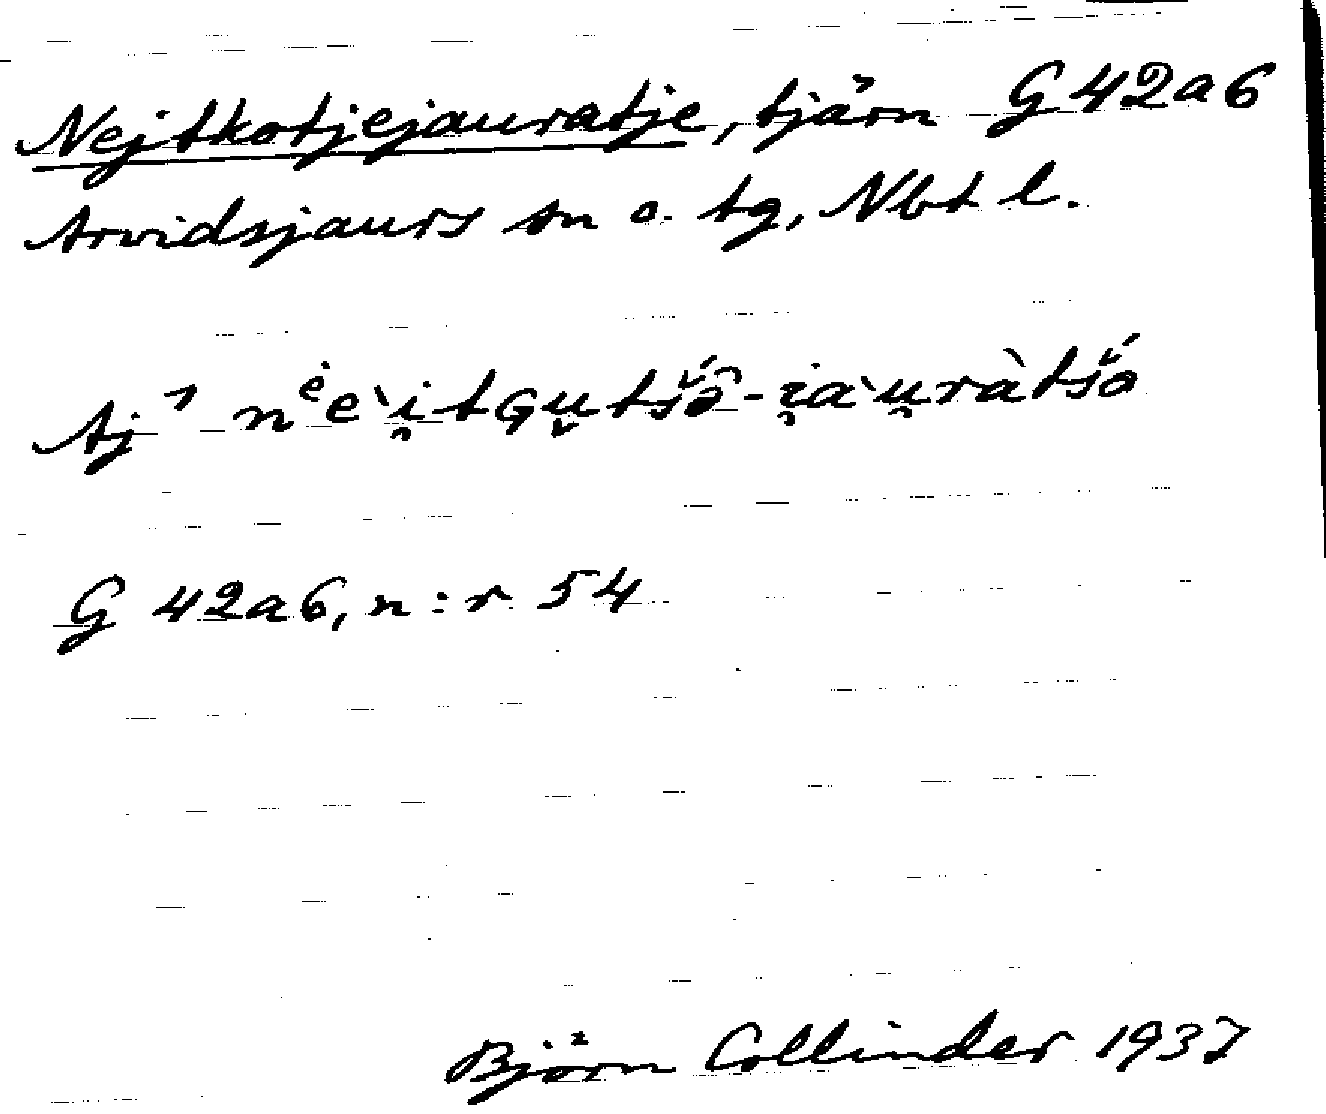 Nejtkotjejauratje, tjärn G42a6
Arvidsjaurs sn o. tg, Nbt l.
Aj
G 42a6, n:r 54
Björn Collinder 1937